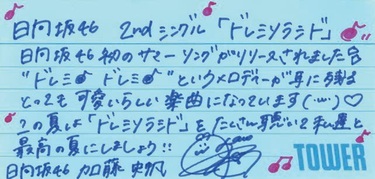 日向坂46 2ndシングル「ドレミソラシド」
日向坂46初のサマーソングがリリースされました
"ドレミ♪ ドレミ♪"というメロディーが耳に残る
とっても可愛いらしい楽曲になっています(・‿・)♡
この夏は「ドレミソラシド」をたくさん聴いて私達と
最高の夏にしましょう!!
日向坂46 加藤史帆
TOWER